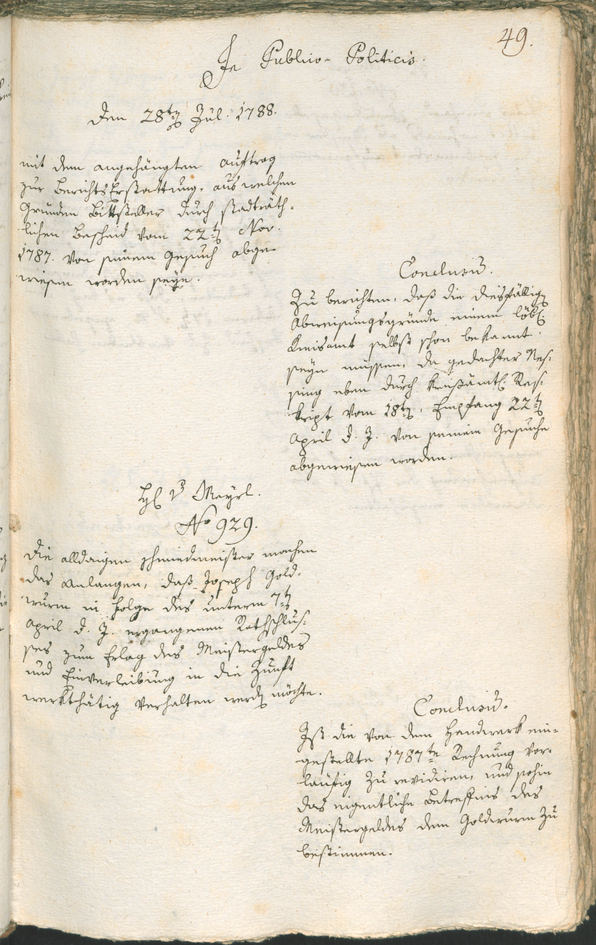 49.
In Publico-Politicis.
Den 28ten Jul. 1788.
mit dem angehängten Auftrag
zur Berichts Erstattung, aus welchen
Gründen Bittsteller durch stadträth-
lichen Bescheid vom 22ten Nov.
1787. von seinem Gesuch abge-
wiesen worden seye.
Conclusum.
Zu berichten, daß die diesfällig
Abweisungsgründe einem löbl.
Kreisamt selbst schon bekannt
seyn müssen, da gedachter
eben durch kreisämtl. Res-
kript vom 18ten, Empfang 22ten
April d. J. von seinem Gesuche
abgewiesen worden.
H. v. Mayrl.
No 929.
Die alldaigen Schmiedmeister machen
das Anlangen, daß Joseph Gold-
wurm in Folge des unterm 7ten
April d. J. ergangenen Rathschlus-
ses zum Erlag des Meistergeldes
und Einverleibung in die Zunft
werkthätig verhalten werden möchte.
Conclusum.
Ist die von dem Handwerk ein-
gestellte 1787te Rechnung vor-
läufig zu revidiren, und sohin
das eigentliche Betreffnis des
Meistergeldes dem Goldwurm zu
bestimmen.